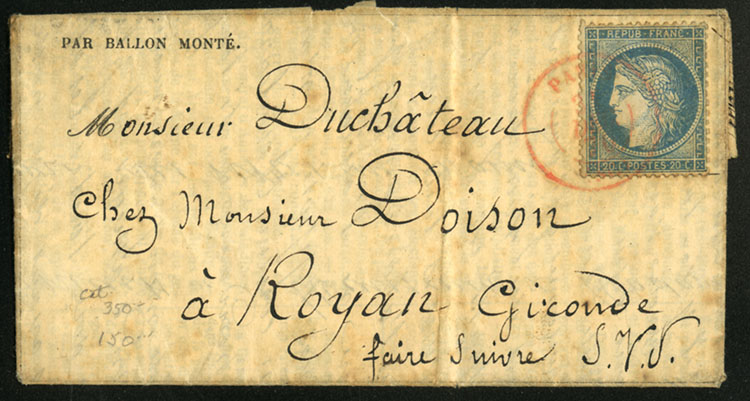 PAR BALLON MONTÉ.
REPUB. FRANC.
PA
20 C POSTES 20 C
Monsieur Duchâteau
Chez Monsieur Doison
à Royan Gironde
faire suivre S.V.P.
cat
350-
150-